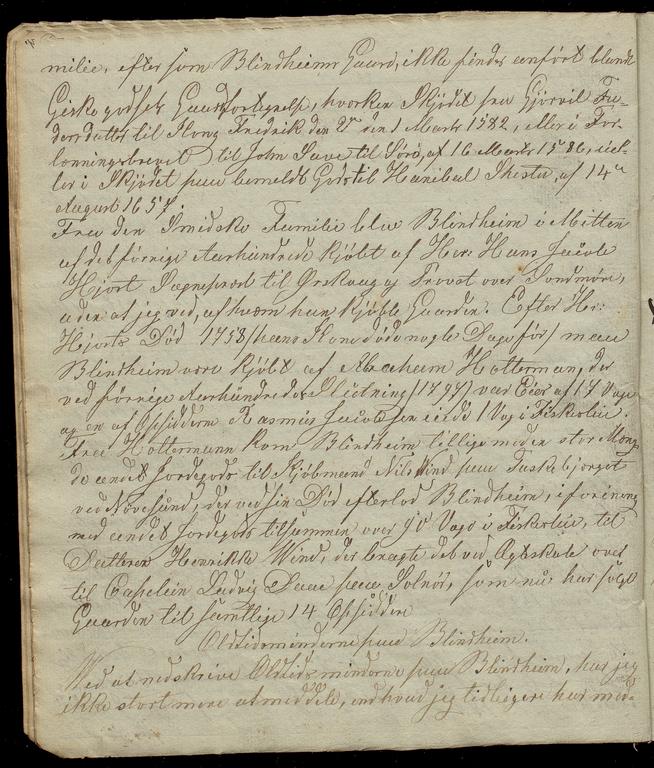 milie, eftersom Blindheims Gaard, ikke findes anført blandt
Giske godsets Gaardfortegnelse, hvorken Skjødet fra Gjørvil Fa-
dersdatter til Kong Fredrik den 2den 1 Marts 1582, eller i For-
lenningsbrevet til John av 16 Marts 1586, iel-
ler i Skjødet paa bemeldte Gods til Hanibal Shested, af 14de
August 1657.
Fra den Smidske Familie blev Blindheim i Mitten
af det förrige Aarhundrede kjøbt af Her: Hans Jacob
Hjort Sogneprest til Ørskoug og Provst over Søndmøre,
uden at jeg ved, af hvem han kjøbte Gaarden. Efter Hr:
Hjorts Död 1758 /hans Kone döde nogle Dage för/ maa
Blindheim være kjöbt af Abraham Hotterman, der
ved förrige Aarhundredes Slutning (1797) var Eier af 17 Vog
og en af Opsidderne Rasmus Jacobsen eiede 1 Vog i Fiskeleie.
Fra Hottermann kom Blindheim tillige med en stor Mæng-
de andet Jordegods til Kjöbmand Nils Wind paa Buskebjerget
ved Növesund, der ved sin Död efterlod Blindheim, i forening
med andet Jordegods tilsammen over 90 Vog i Fiskeleie, til
Datteren Henrikke Wind, der bragte det ved Ægteskab over
til Capelein Ludvig Daae paa Solnör, som nu har solgt
Gaarden til samtlige 14 Opsiddere
Oldtidsminderne paa Blindheim.
Ved at nedskrive Oldtidsminderne paa Blindheim, har jeg
ikke stort mere at meddele, end hvad jeg tidligere har med-